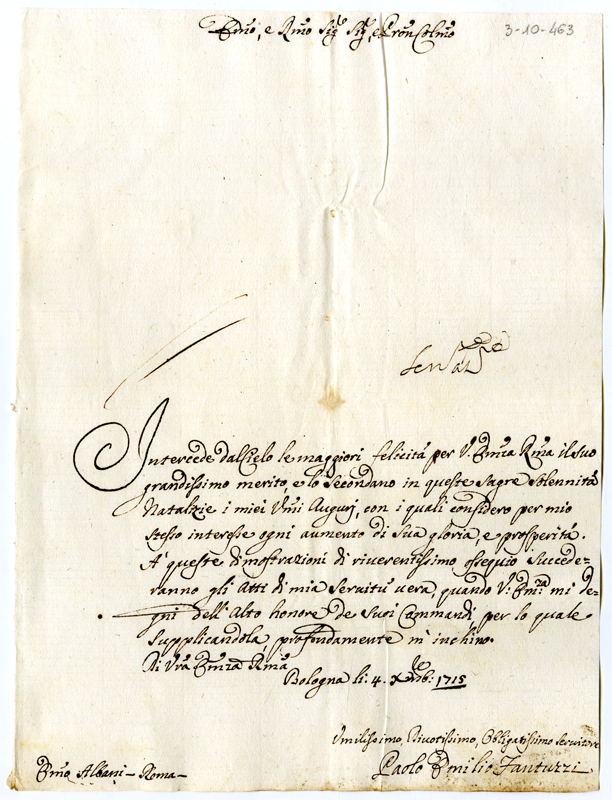 Emo, e Rmo Sig.r Sig.r, e Pron Colmo
3-10-463
Intercede dal Cielo le maggiori felicità per V. Emza Rma il suo
grandissimo merito, e lo Secondano in queste Sagre Solennità
Natalizie i miei Vmi Augurj, con i quali considero per mio
stesso interesse ogni aumento di Sua gloria, e prosperità.
A' queste dimostrazioni di riverentissimo ossequio succede-
ranno gli Atti di mia Servitù vera, quando V. Em.za mi de-
gni dell'Alto honore de Suoi Commandi, per lo quale
supplicandola profondamente m'inchino.
Di Vra Emza Rma
Bologna li: 4. Xmb.re 1715
Vmilissimo, Divotissimo, Obligatissimo Servitore
Emo Albani - Roma -
Paolo Emilio Fantuzzi